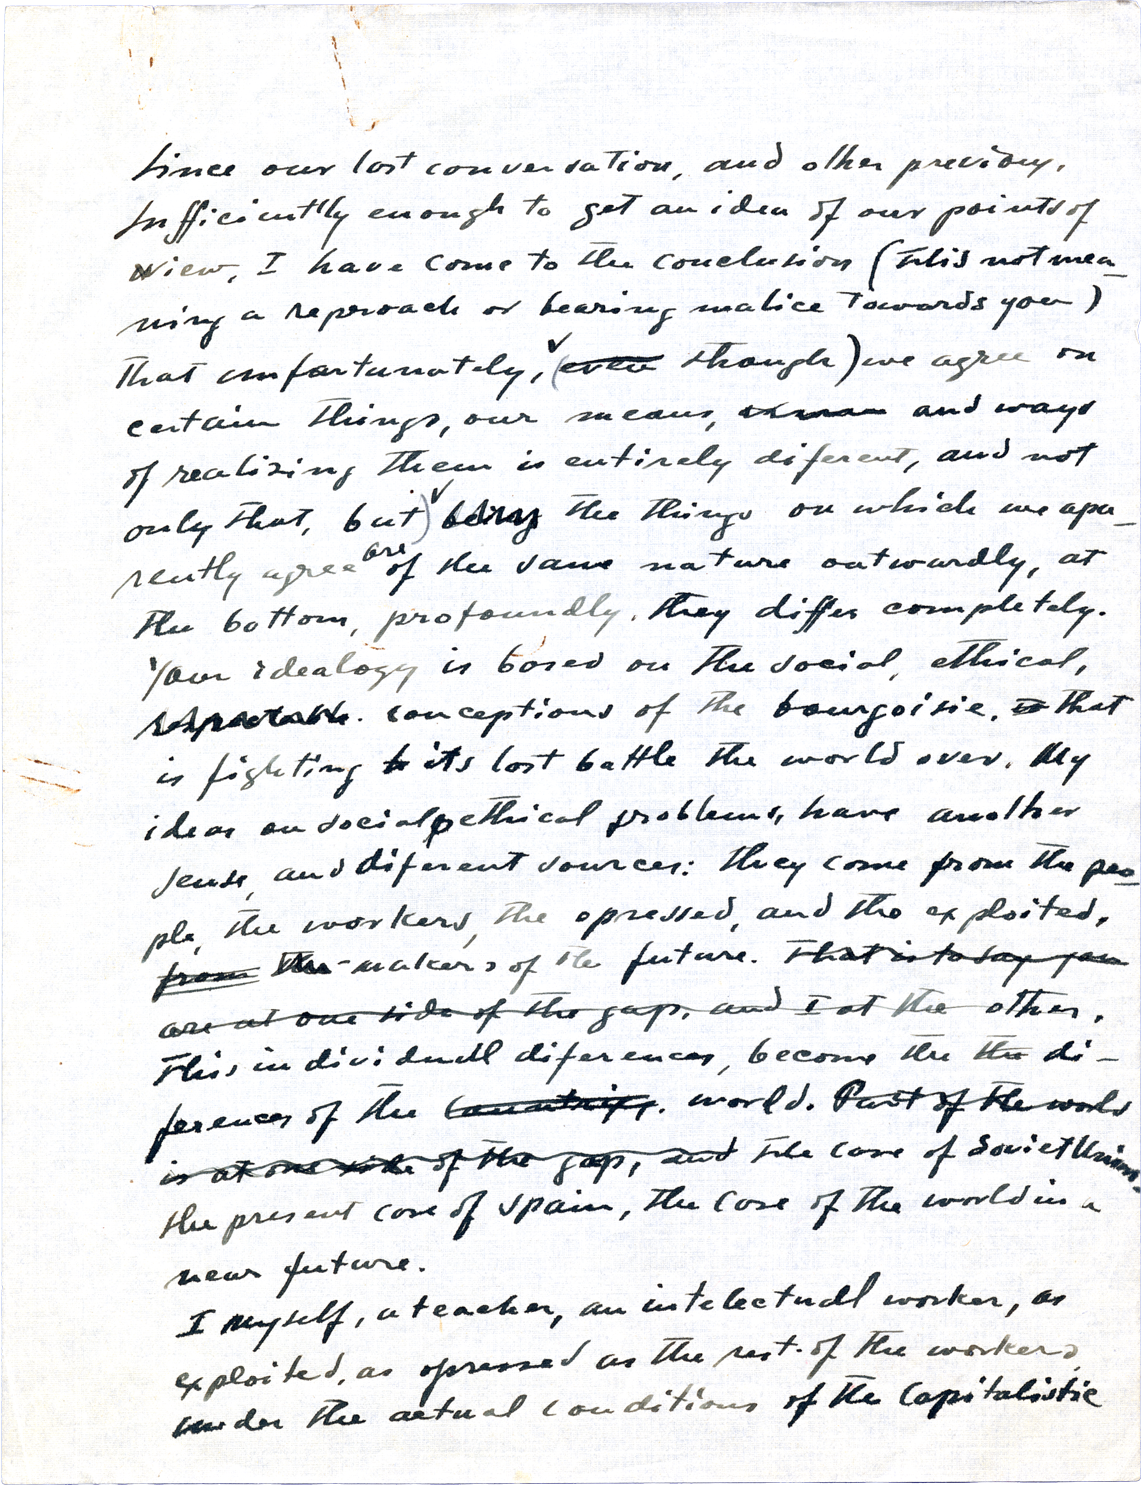 Since our last conversation, and other previous,
sufficiently enough to get an idea of our points of
view, I have come to the conclusion (this not mea-
ning a reproach or bearing malice towards you)
that unfortunately, (even though) we agree on
certain things, our means, and ways
of realizing them is entirely diferent, and not
only that, but) being the things on which we apa-
rently agree are of the same nature outwardly, at
the bottom, profoundly, they differ completely.
Your idealogy is based on the social, ethical,
conceptions of the bourgoisie, that
is fighting its last battle the world over. My
ideas on social ethical problems, have another
sense, and diferent sources: they come from the peo-
ple, the workers, the opressed, and the exploited,
from the makers of the future. That is to say you
are at one side of the gap, and I at the other.
This individuall diferences, become the the di-
ferences of the countries. world. Part of the world
is at one side of the gap, and the case of Soviet Union,
the present case of Spain, the case of the world in a
near future.
I myself, a teacher, an intelectuall worker, as
exploited, as opressed as the rest of the workers
under the actual conditions of the Capitalistic